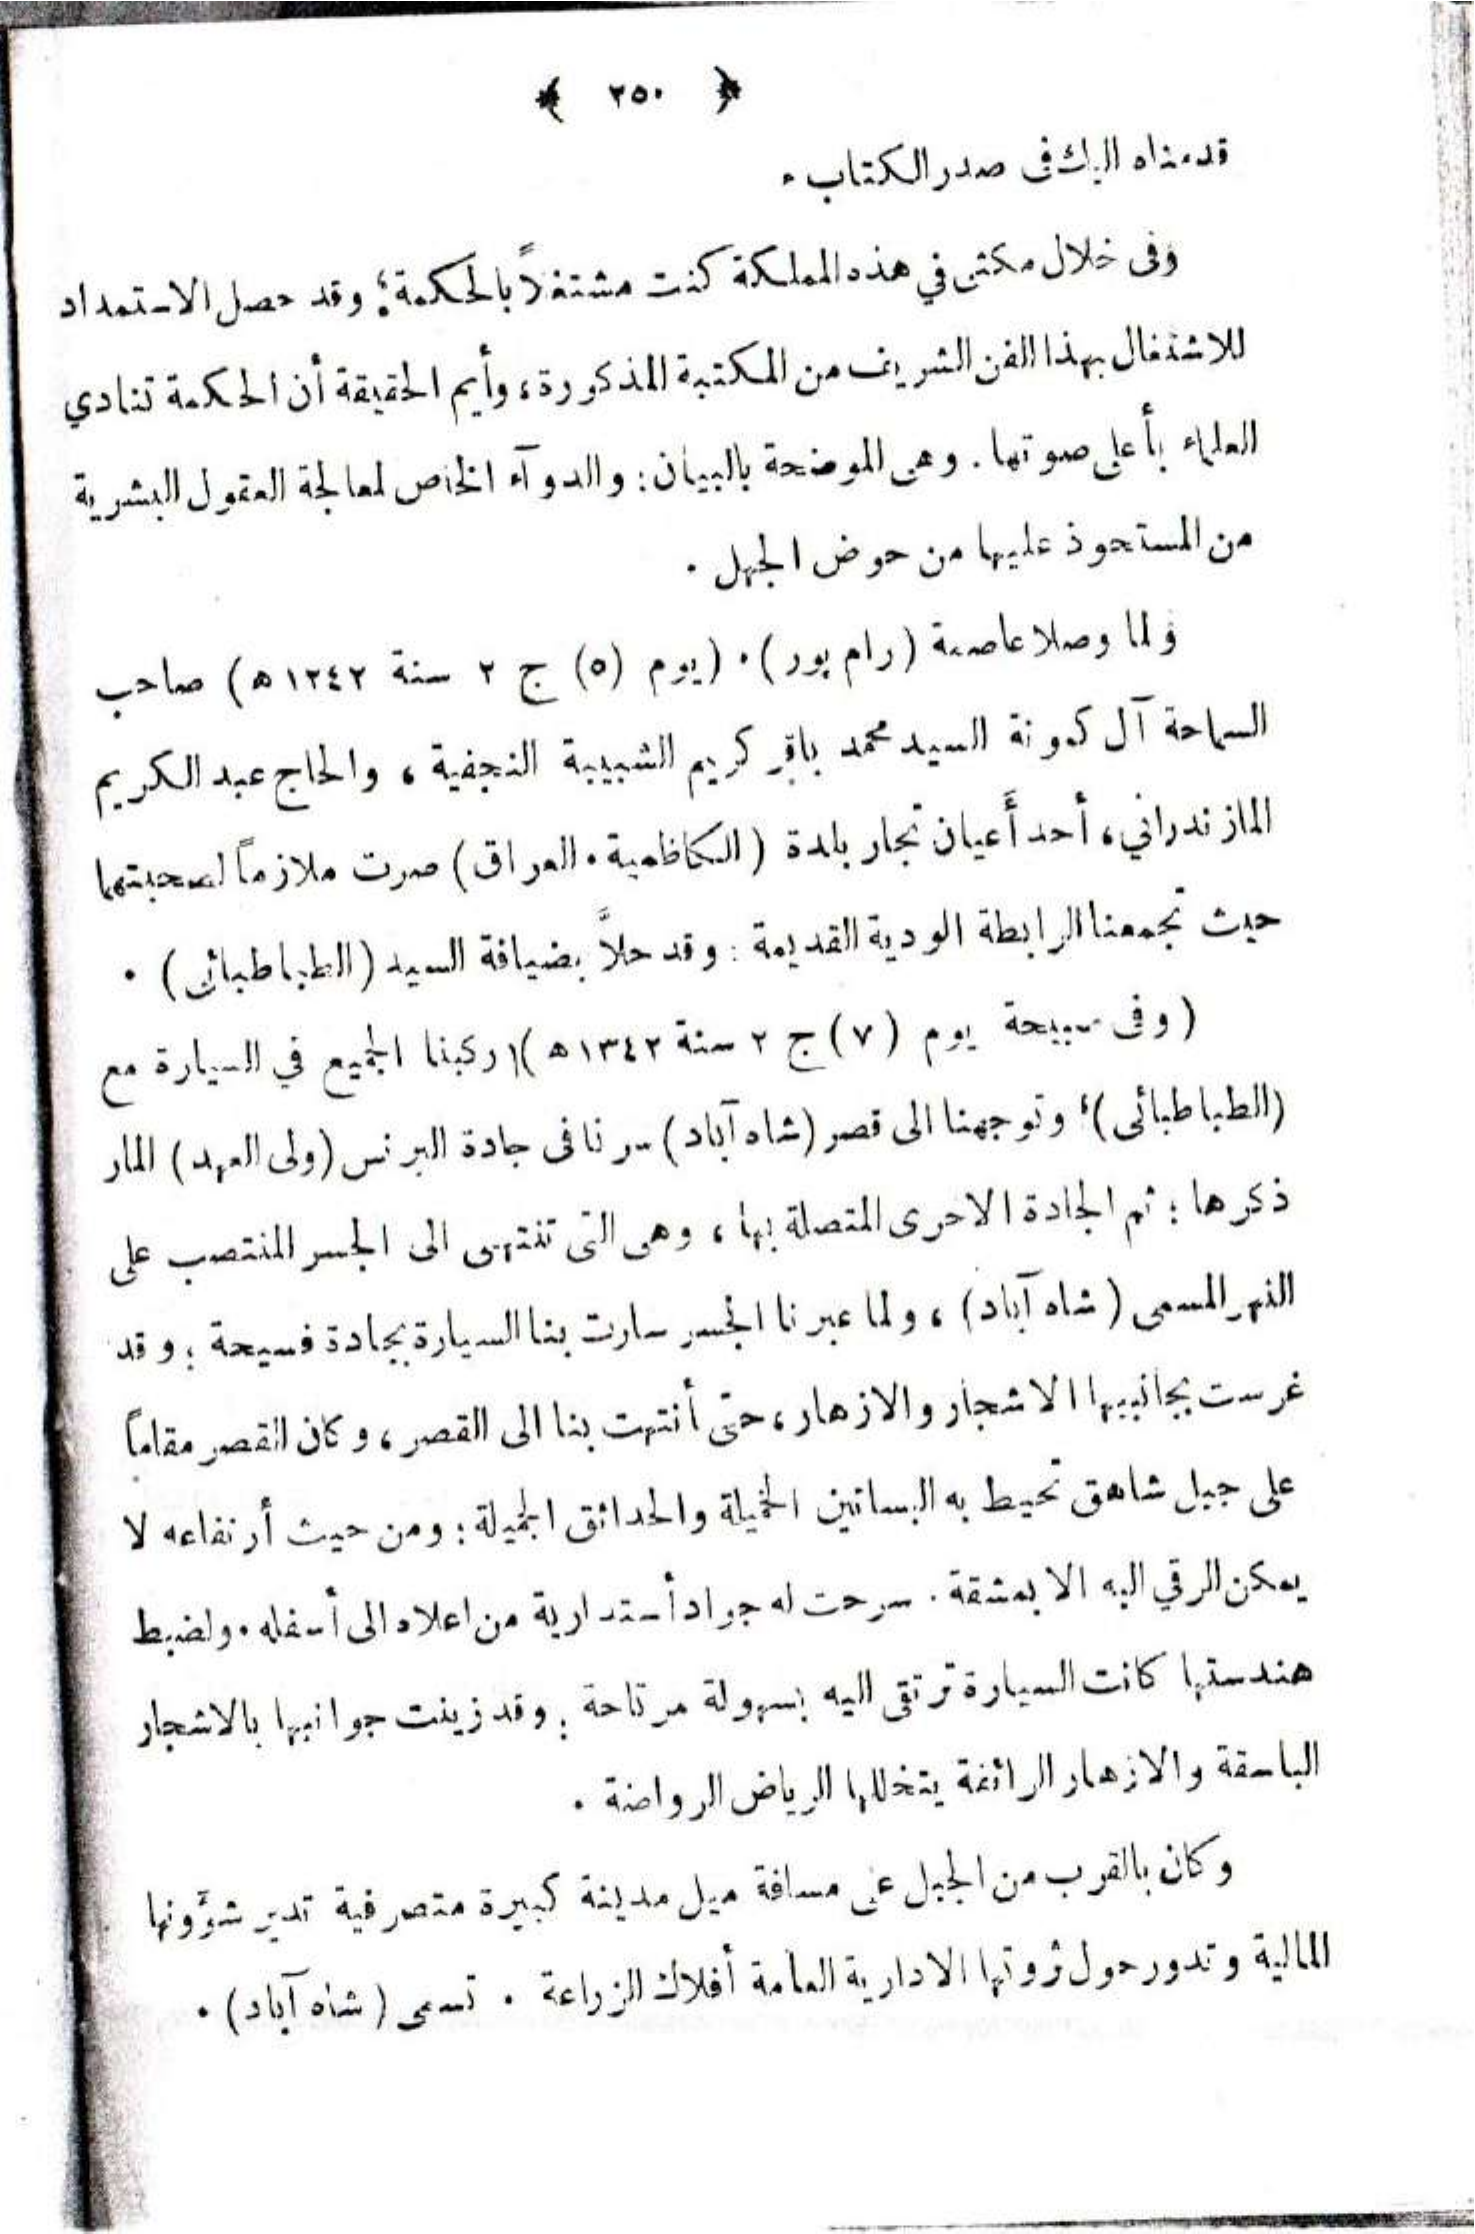 ﴿ ٢٥٠ ﴾
قدمناه اليك فى صدر الكتاب ٠
وفى خلال مكثى في هذه المملكة كنت مشتغلاً بالحكمة؛ وقد حصل الاستمداد
للاشتغال بهذا الفن الشريف من المكتبة المذكورة، وأيم الحقيقة أن الحكمة تنادي
العلماء بأعلى صوتها . وهى الموضحة بالبيان: والدوآء الخاص لمعالجة العقول البشرية
من المستحوذ عليها من حوض الجهل ٠
ولما وصلا عاصمة (رام پور) ٠ (يوم (٥) ج ٢ سنة ١٢٤٢ ه) صاحب
السماحة آل كمونة السيد محمد باقر كريم الشبيبة النجفية ، والحاج عبد الكريم
المازندراني، أحد أعيان تجار بلدة (الكاظمية ٠ العراق) صرت ملازماً لصحبتهما
حيث تجمعنا الرابطة الودية القديمة : وقد حلاَّ بضيافة السيد (الطباطبائى) ٠
(وفى صبيحة يوم (٧) ج ٢ سنة ١٣٤٢ ه) ركبنا الجميع في السيارة مع
(الطباطبائى)؛ وتوجهنا الى قصر (شاه آباد) سرنا فى جادة البرنس (ولى العهد) المار
ذكرها ؛ ثم الجادة الاخرى المتصلة بها ، وهى التى تنتهى الى الجسر المنتصب على
النهر المسمى (شاه آباد) ، ولما عبرنا الجسر سارت بنا السيارة بجادة فسيحة ؛ وقد
غرست بجانبيها الاشجار والازهار ، حتى أنتهت بنا الى القصر ، وكان القصر مقاماً
على جبل شاهق تحيط به البساتين الخميلة والحدائق الجميلة ؛ ومن حيث أرتفاعه لا
يمكن الرقي اليه الا بمشقة . سرحت له جواد أستدارية من اعلاه الى أسفله ٠ ولضبط
هندستها كانت السيارة ترتقى اليه بسهولة مرتاحة ؛ وقد زينت جوانبها بالاشجار
الباسقة والازهار الرائقة يتخللها الرياض الرواضة ٠
وكان بالقرب من الجبل على مسافة ميل مدينة كبيرة متصرفية تدير شؤونها
المالية وتدور حول ثروتها الادارية العامة أفلاك الزراعة ٠ تسمى (شاه آباد) ٠